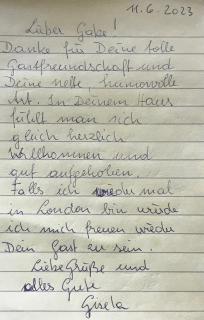 11.6.2023
Lieber Gabe!
Danke für Deine tolle
Gastfreundschaft und
Deine nette, humorvolle
Art. In Deinem Haus
fühlt man sich
gleich herzlich
willkommen und
gut aufgehoben.
Falls ich wieder mal
in London bin würde
ich mich freuen wieder
Dein Gast zu sein.
Liebe Grüße und
alles Gute
Gisela